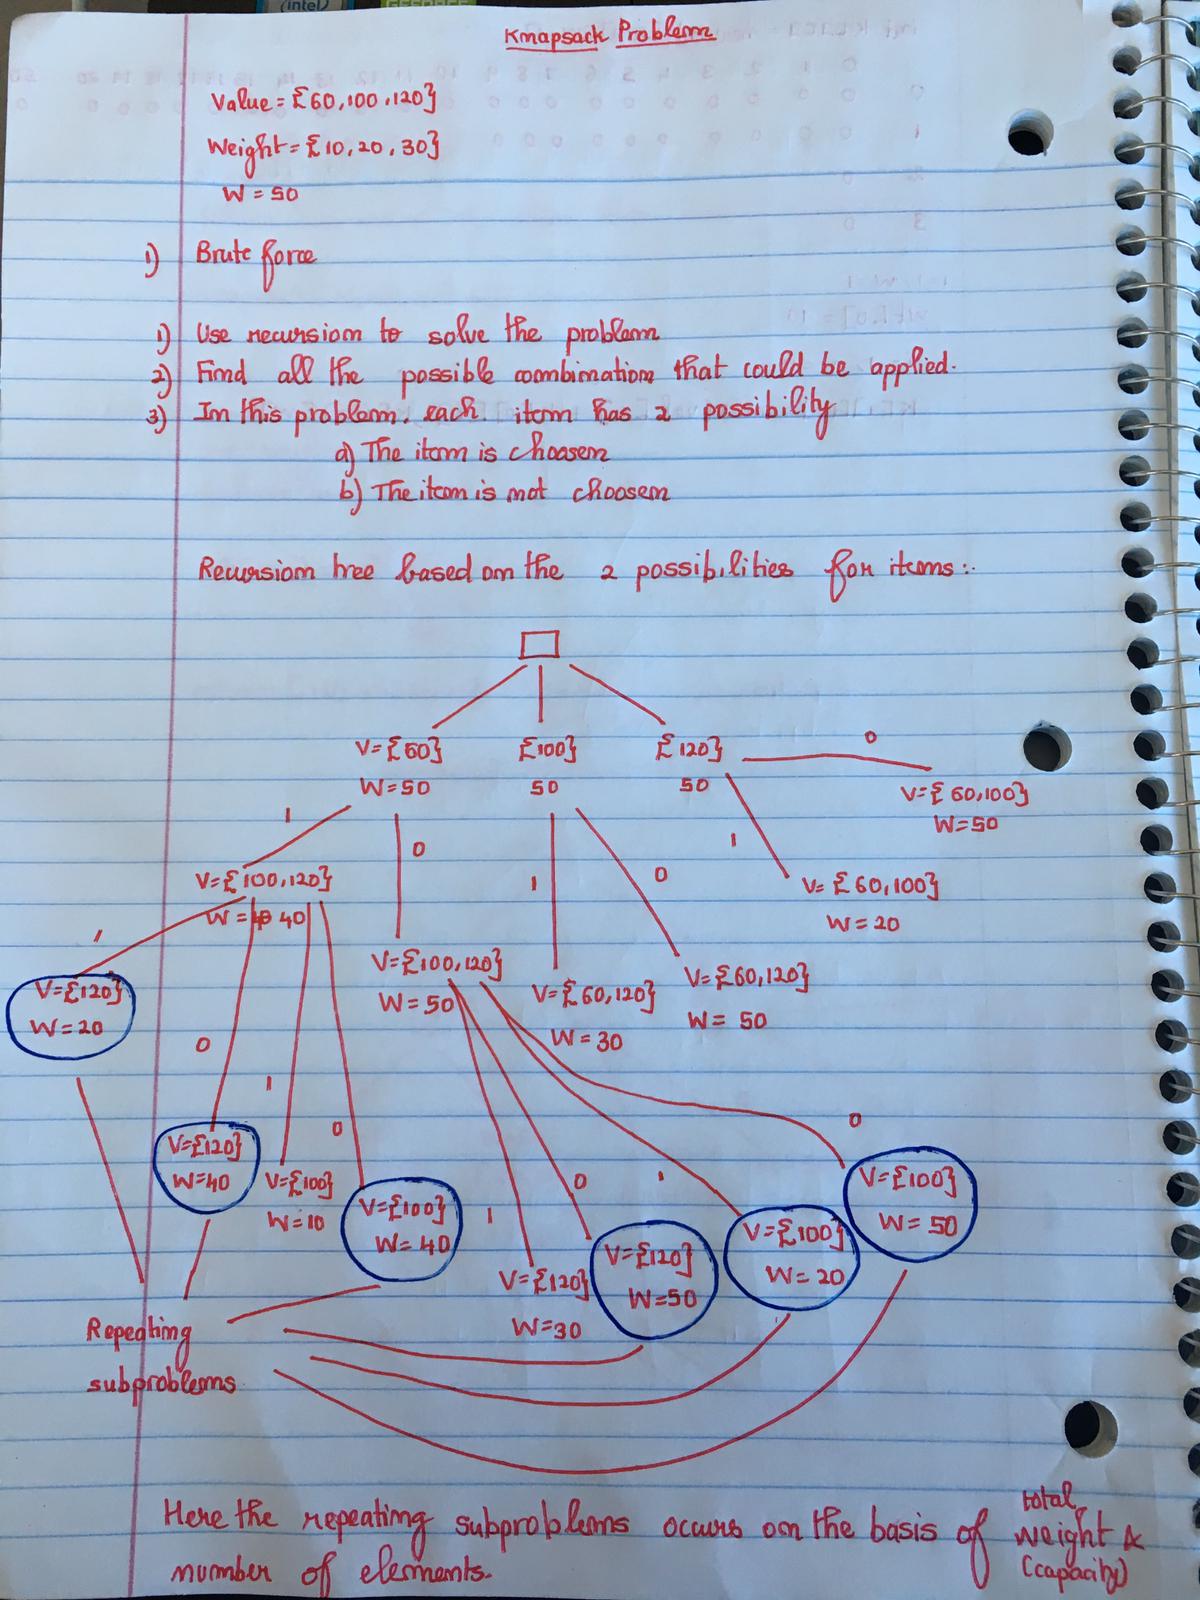 (intel)
Knapsack Problem
Value = {60,100,120}
Weight = {10, 20, 30}
W = 50
1) Brute force
1) Use recursion to solve the problem
2) Find all the possible combinations that could be applied.
3) In this problem, each item has 2 possibility
a) The item is choosen
b) The item is not choosen
Recursion tree based on the 2 possibilities for items:
V={60} {100} {120} 0
W=50 50 50 V={60,100}
W=50
1 0 1 0 1
V={100,120} V={60,100}
W=40 W=20
1 V={100,120} V={60,120} V={60,120}
V={120} W=50 W=30 W=50
W=20
0 1 0 0
V={120} V={100} V={100} 1 0 1 V={100}
W=40 W=10 W=40 W=50
V={120} V={120} V={100}
W=30 W=50 W=20
Repeating
subproblems
Here the repeating subproblems occurs on the basis of total weight &
number of elements. (capacity)